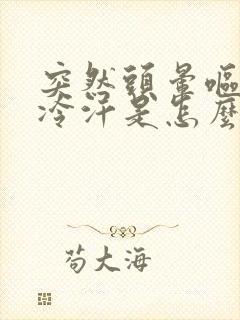 突然頭暈嘔
冷汗是怎麼
苟大海